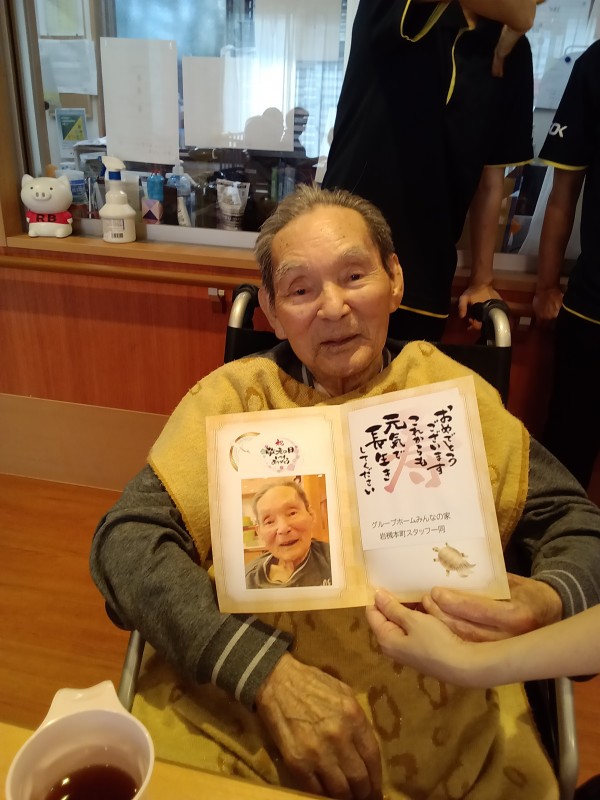 祝
敬老の日
おめでとう
ございます
これからも
元気で
長生き
してください
グループホームみんなの家
岩槻本町スタッフ一同
RB